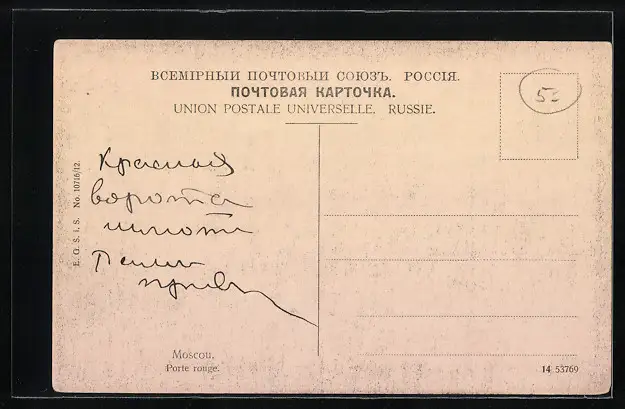 ВСЕМІРНЫЙ ПОЧТОВЫЙ СОЮЗЪ. РОССІЯ.
ПОЧТОВАЯ КАРТОЧКА.
UNION POSTALE UNIVERSELLE. RUSSIE.
52
Красныя
ворота
E. G. S. i. S. No. 10716/12.
Moscou.
Porte rouge.
14 53769